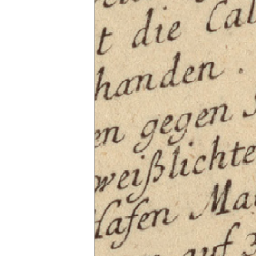 t die Cal
handen.
en gegen
weißlichte
lafen Ma
auf 3